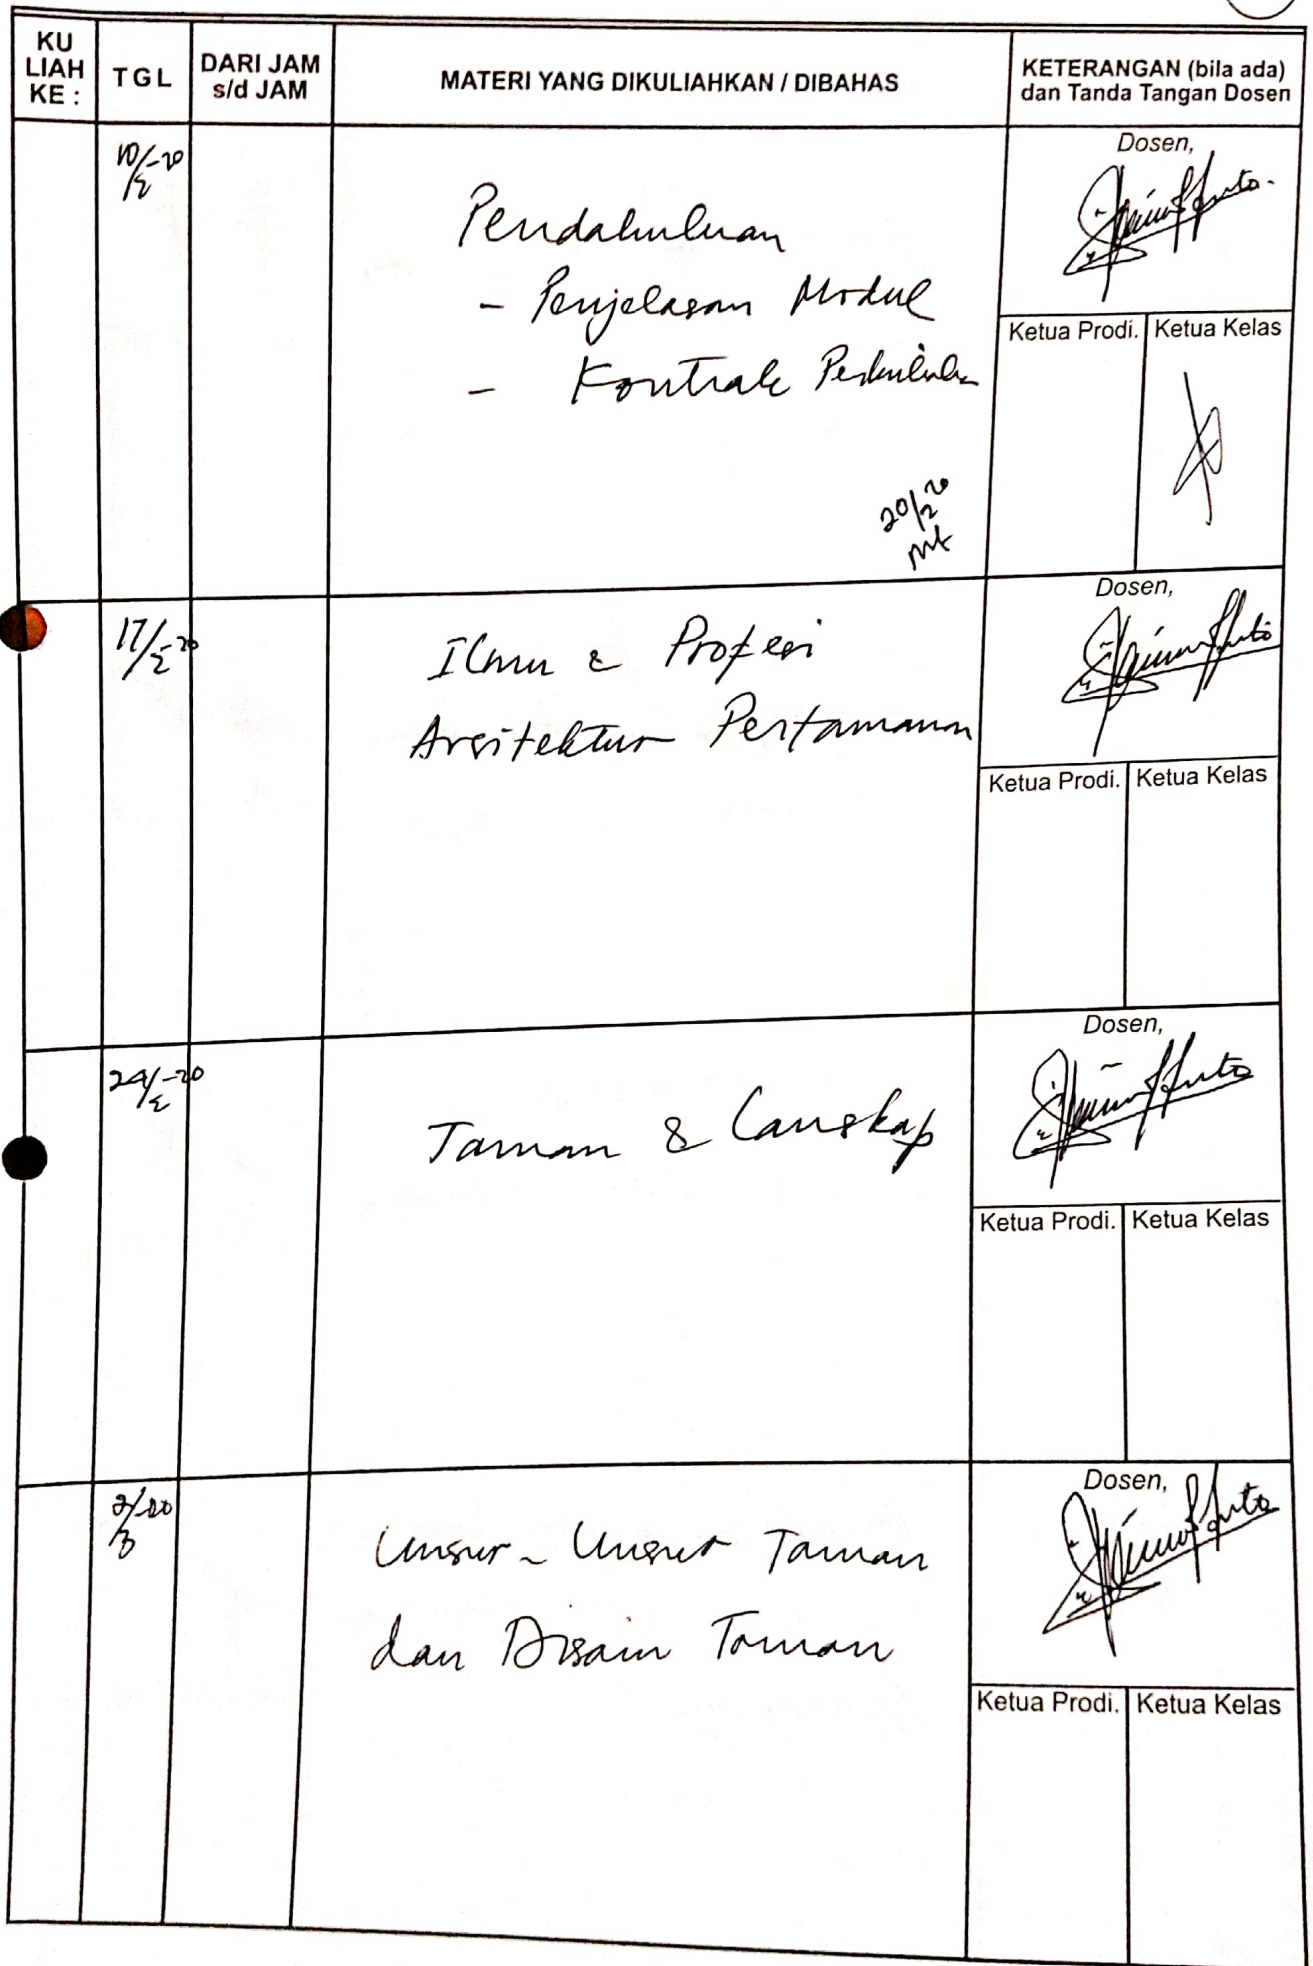 KU LIAH KE :
TGL
DARI JAM s/d JAM
MATERI YANG DIKULIAHKAN / DIBAHAS
KETERANGAN (bila ada) dan Tanda Tangan Dosen
10/2-20
Pendahuluan
- Penjelasan Modul
- Kontrak Perkuliahan
20/2 20
Dosen,
Ketua Prodi.
Ketua Kelas
17/2-20
Ilmu & Profesi
Arsitektur Pertamanan
Dosen,
Ketua Prodi.
Ketua Kelas
24/2-20
Taman & Lanskap
Dosen,
Ketua Prodi.
Ketua Kelas
2/3-20
Unsur - Unsur Taman
dan Disain Taman
Dosen,
Ketua Prodi.
Ketua Kelas